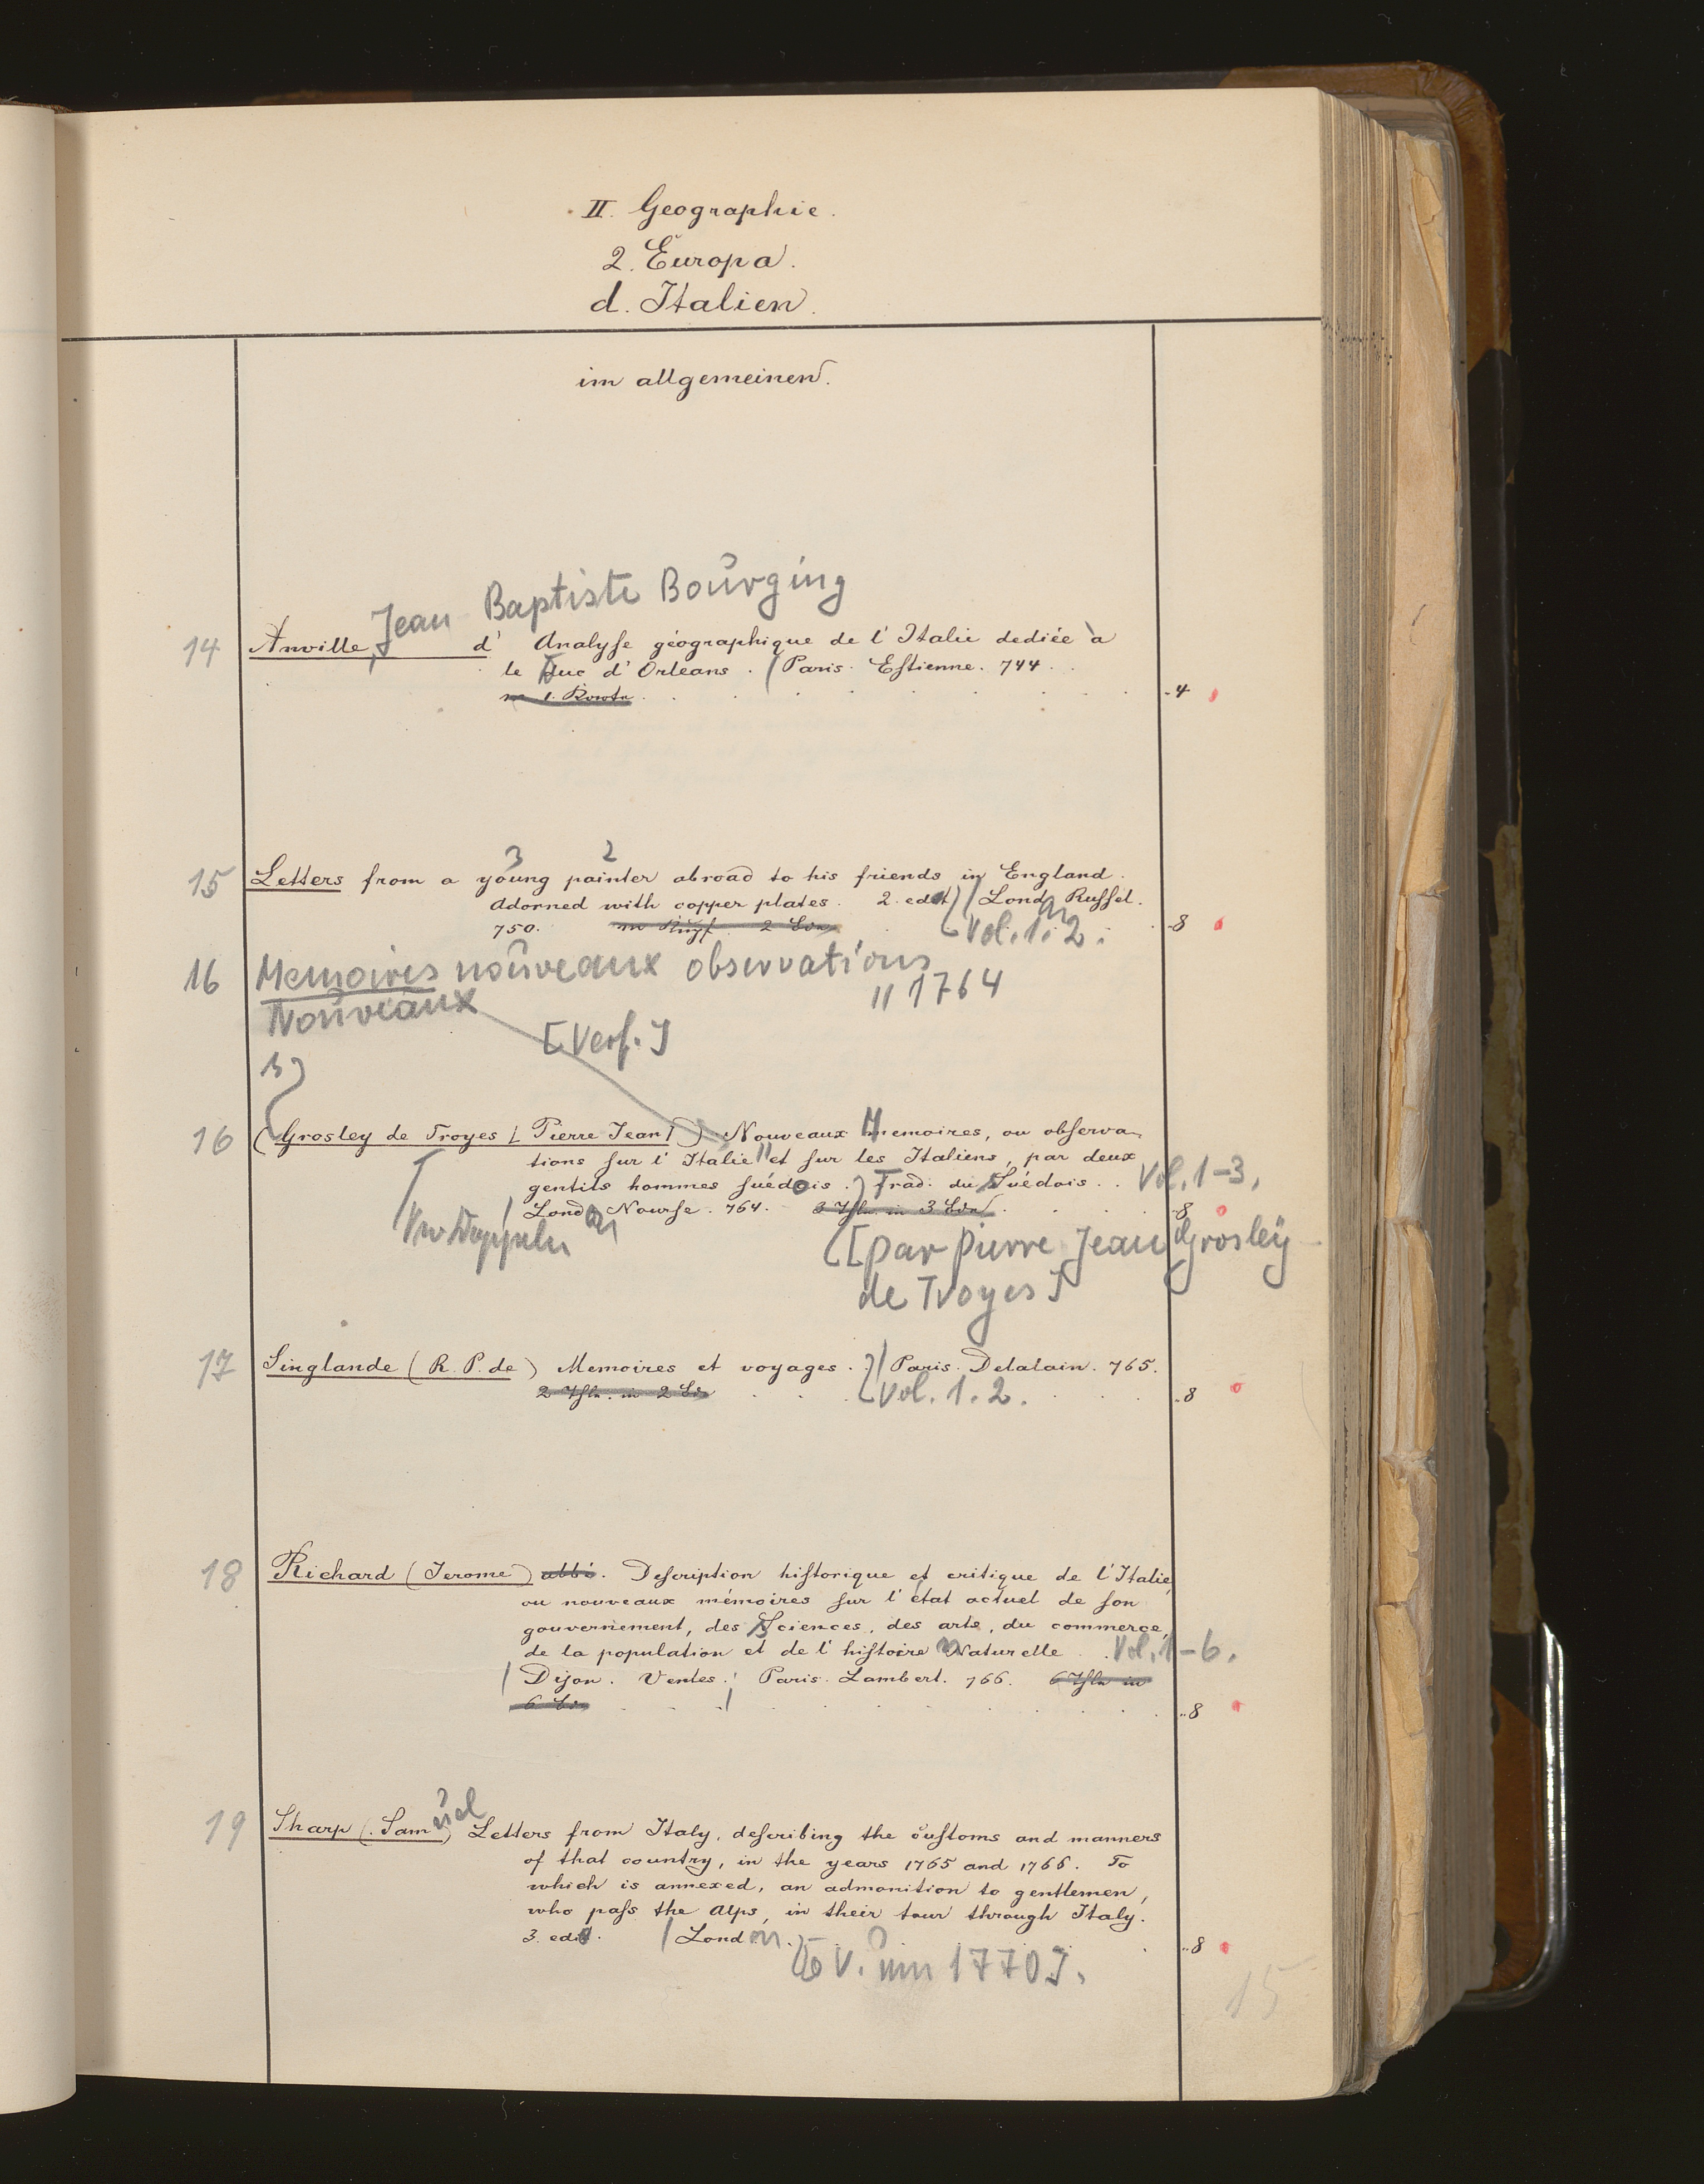 II. Geographie.
2. Europa.
d. Italien.
im allgemeinen.
Jean Baptiste Bourging
14 Anville, d' Analyse géographique de l'Italie dediée à
le Duc d'Orleans. / Paris. Estienne. 744.
m 1. Karte -4
3 2
15 Letters from a young painter abroad to his friends in England.
Adorned with copper plates. 2. edit // London Russel.
750. m Kupf. 2 Bde Vol. 1. 2. -8
16 Memoires nouveaux observations
Nouveaux // 1764
[Verf.]
16 (Grosley de Troyes [Pierre Jean]) Nouveaux Memoires, ou observa-
tions sur l'Italie // et sur les Italiens, par deux
gentils hommes suédois. Trad. du Suédois. Vol. 1-3.
/ London Nourse. 764. 3 Thle. in 3 Bde. -8
[par Pierre Jean Grosley
de Troyes]
17 Singlande (R. P. de) Memoires et voyages. / Paris. Delalain. 765.
2 Thle. in 2 Bde Vol. 1. 2. -8
18 Richard (Jerome) abbé. Description historique et critique de l'Italie,
ou nouveaux mémoires sur l'état actuel de son
gouvernement, des Sciences, des arts, du commerce,
de la population et de l'histoire Naturelle. Vol. 1-6.
/ Dijon. Ventes. / Paris. Lambert. 766. 6 Thle in
6 Bde -8
19 Sharp (Samuel) Letters from Italy, describing the customs and manners
of that country, in the years 1765 and 1766. To
which is annexed, an admonition to gentlemen,
who pass the Alps, in their tour through Italy.
3. edit. / London. -8
V. um 1770].
15